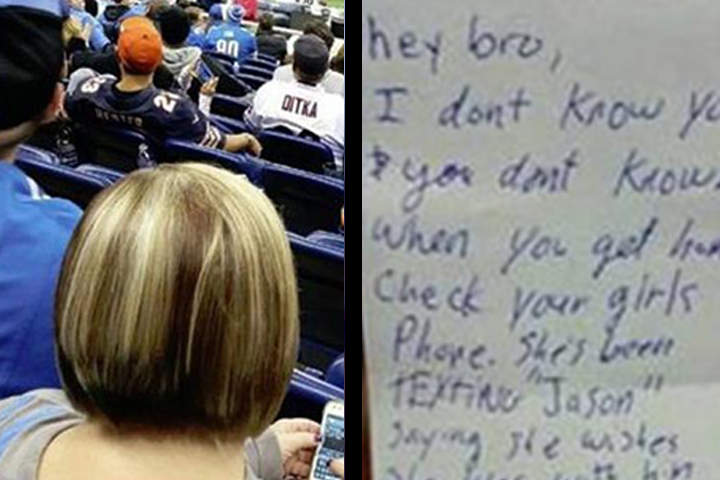 90
23
HESTER
DITKA
hey bro,
I dont know yo
& you dont know
When you get hom
Check your girls
Phone. She's been
TEXTING "Jason"
Saying she wishes